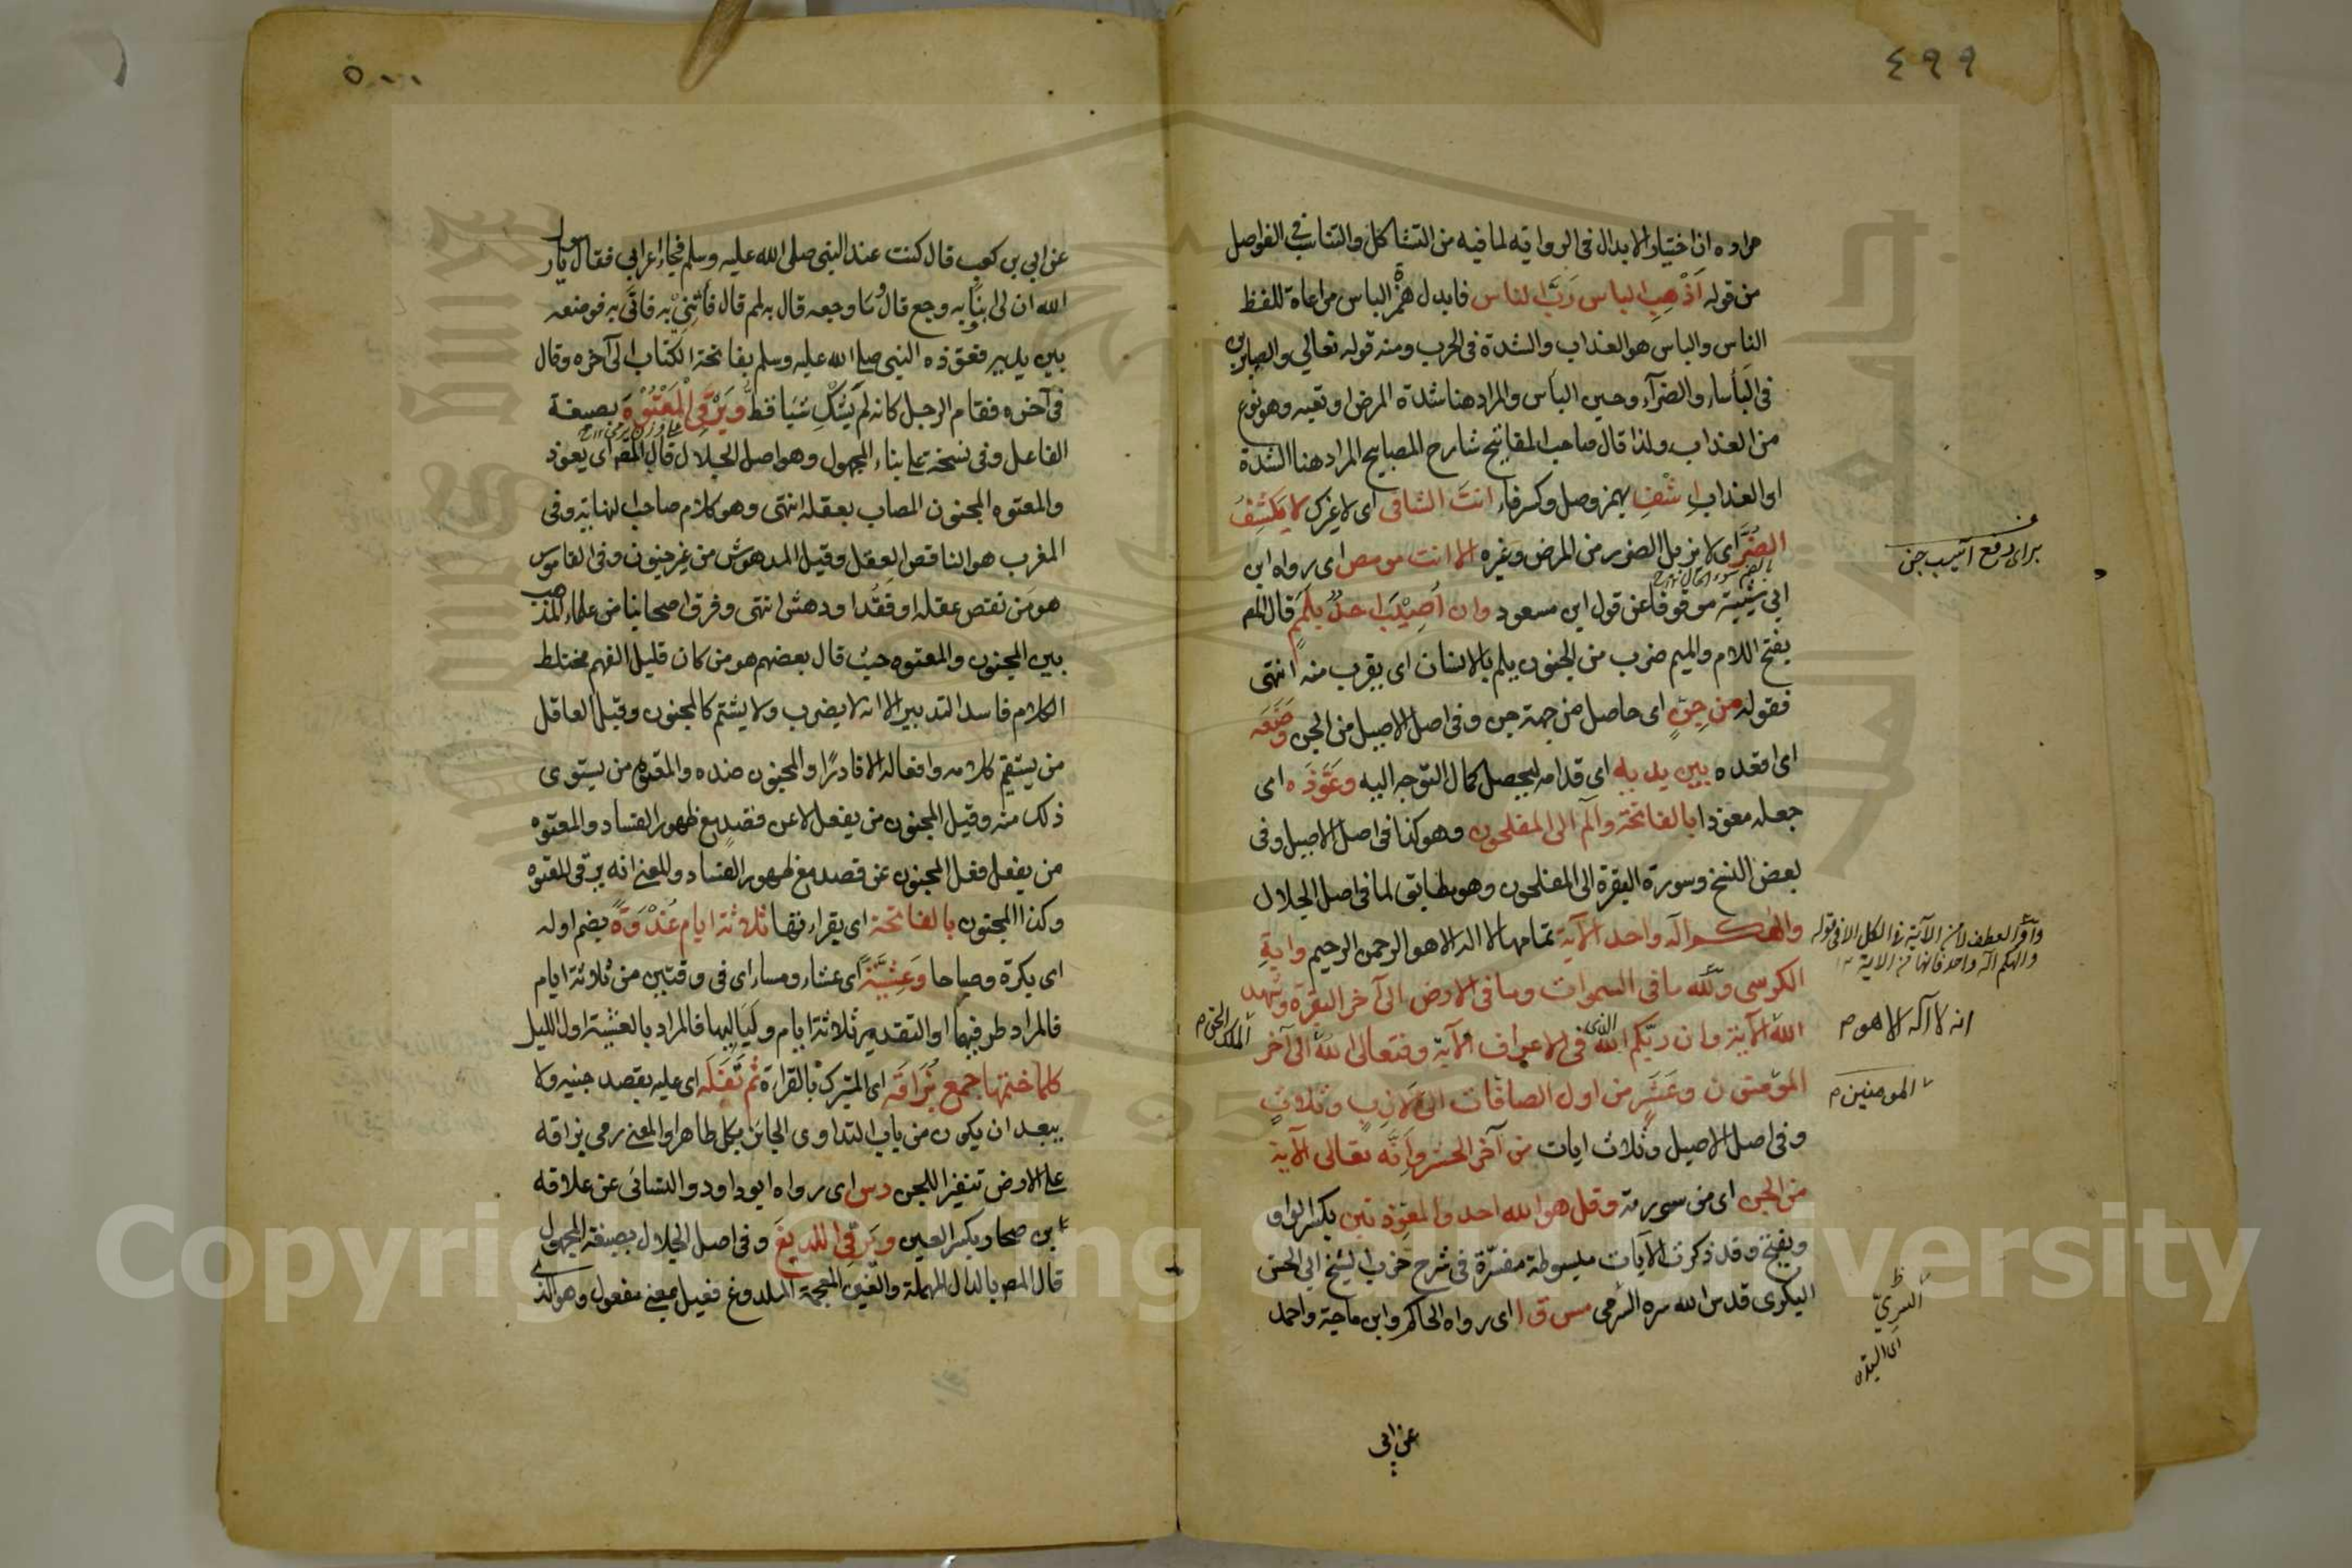 ٤٩٩
مراده ان اختيار الابدال فى الرواية لما فيه من التشاكل والتناسب فى الفواصل
من قوله اَذْهِبِ الباس رَبَّ الناس فابدل همزة الباس مراعاة للفظ
الناس والباس هو العذاب والشدة فى الحرب ومنه قوله تعالي والصابرين
فى البأساء والضرآء وحين البأس والمراد هنا شدة المرض او تعبه وهو نوع
من العذاب ولذا قال صاحب المفاتيح شارح المصابيح المراد هنا الشدة
او العذاب اِشْفِ بهمز وصل وكسر فاء انتَ الشافى اى لا غيرك لا يَكشِفُ
الضُرَّ اى لا يزيل الضرر من المرض وغيره الا انت مو مص اى رواه ابن
ابى شيبة موقوفا عن قول ابن مسعود وان اُصِيْبَ احدٌ بِلَمَمٍ قال المص
بفتح اللام والميم ضرب من الجنون يلم بالانسان اى يقرب منه انتهى
فقوله من جِنٍّ اى حاصل من جهة جن وفى اصل الاصيل من الجن وَضَعَه
اى اقعده بين يديه اى قدامه ليحصل كمال التوجه اليه وعَوَّذَه اى
جعله معوذا بالفاتحة والٓم الى المفلحون وهو كذا فى اصل الاصيل وفى
بعض النسخ وسورة البقرة الى المفلحون وهو مطابق لما فى اصل الجلال
والهكم اله واحد الآية تمامها لا اله الا هو الرحمن الرحيم واٰيةِ
الكرسى وللّه ما فى السموات وما فى الارض الى آخر البقرة وشهد
اللّه الآية وان ربّكم اللّه الذى فى الاعراف الآية وفتعالى اللّه الى آخر
المؤمنون وعَشَرٍ من اول الصافات الى لازب وثلاثٍ
وفى اصل الاصيل وثلاث ايات من آخر الحشر وَاَنَّه تعالى الآية
من الجن اى من سورته وقل هو الله احد والمعوّذتين بكسر الواو
ويفتح وقد ذكرت الآيات مبسوطة مفسّرة فى شرح حزب الشيخ ابى الحسن
البكرى قدس الله سره السّرمى مس ق ا اى رواه الحاكم وابن ماجة واحمد
برای دفع آسیب جن
والهكم اله واحد فانها من الاية
انه لا اله الا هو م
الملك الحق م
المومنين م
السرىّ
عن ابى
٥٠٠
عن ابي بن كعب قال كنت عند النبى صلى الله عليه وسلم فجاء اعرابي فقال يا رسول
الله ان لى ابنا به وجع قال وما وجعه قال به لمم قال فأتنى به فاتى به فوضعه
بين يديه فعوّذه النبى صلى الله عليه وسلم بفاتحة الكتاب الى آخره وقال
فى آخره فقام الرجل كانه لم يَشْكِ شيئا قطّ ويَرْقِى الْمَعْتُوْهَ بصيغة
الفاعل وفى نسخة على بناء المجهول وهو اصل الجلال قال المص اى يعوذ
والمعتوه المجنون المصاب بعقله انتهى وهو كلام صاحب النهاية وفى
المغرب هو الناقص العقل وقيل المدهوش من غير جنون وفى القاموس
هو من نقص عقله او فقد او دهش انتهى وفرق اصحابنا من علماء المذهب
بين المجنون والمعتوه حيث قال بعضهم هو من كان قليل الفهم مختلط
الكلام فاسد التدبير الا انه لا يضرب ولا يشتم كالمجنون وقيل العاقل
من يستقيم كلامه وافعاله الا نادرًا والمجنون ضده والمعتوه من يستوى
ذلك منه وقيل المجنون من يفعل لا عن قصد مع ظهور الفساد والمعتوه
من يفعل فعل المجنون عن قصد مع ظهور الفساد والمعنى انه يرقى المعتوه
وكذا المجنون بالفاتحة اى يقراءتها ثلاثة ايام غُدْوَةً بضم اوله
اى بكرة وصباحا وَعشِيَّةً اى عشاء ومساء اى فى وقتين من ثلاثة ايام
فالمراد طرفيها او التقدير ثلاثة ايام ولياليها فالمراد بالعشية اول الليل
كلما ختمها جمع بُزَاقَه اى المتبرك بالقراءة ثُمَّ تَفَلَه اى عليه بقصد جنبه ولا
يبعد ان يكون من باب التداوى الجائز بكل طاهر او المعنى رمى بزاقه
على الارض تنفيرا للجن د س اى رواه ابو داود والنسائى عن علاقة
بن صحار بكسر العين ويَرْقِى اللديغَ وفى اصل الجلال بصيغة المجهول
قال المص بالدال المهملة والغين المعجمة الملدوغ فعيل بمعنى مفعول وهو الذى
Copyright © King Saud University
جامعة الملك سعود
1957